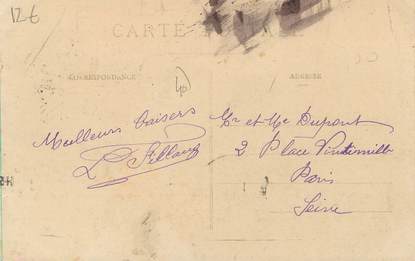 12€
CARTE POSTALE
CORRESPONDANCE
ADRESSE
Meilleurs baisers
Mr et Me Dupont
2 Place Vintimille
Paris
Seine